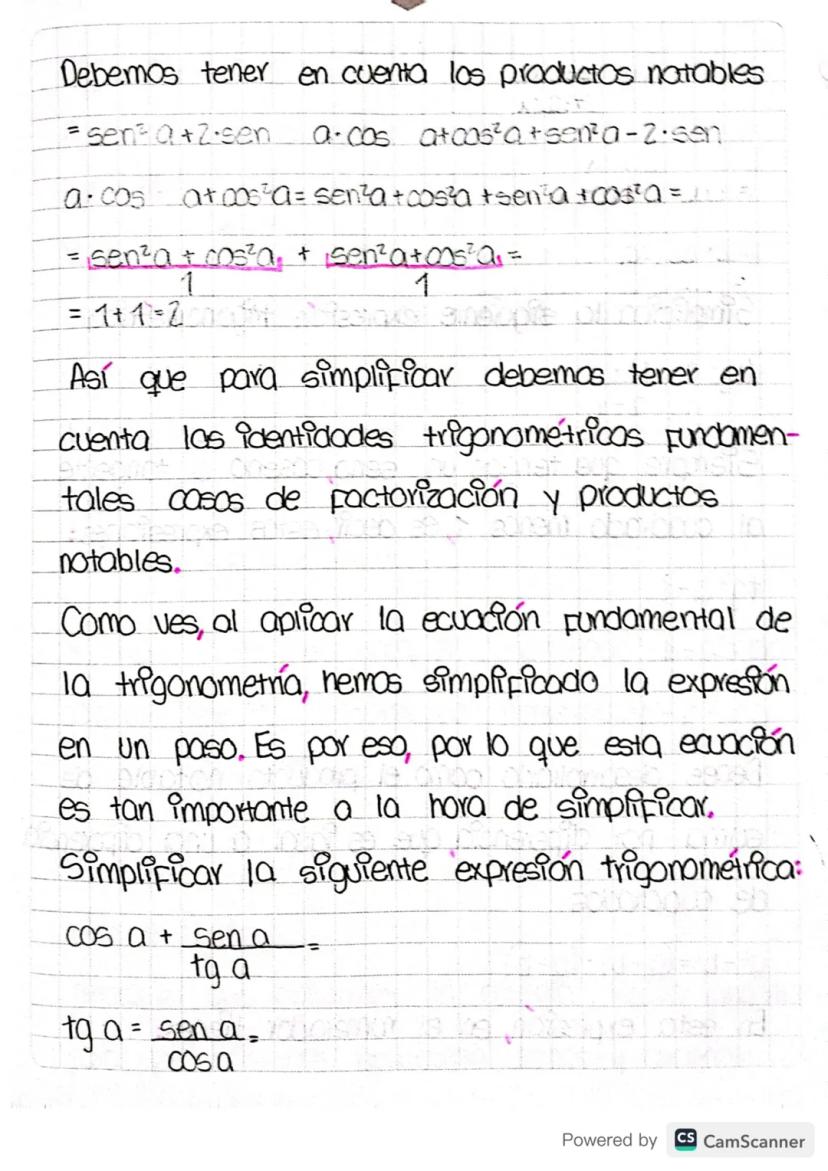 Debemos tener en cuenta los productos notables
= sen² a + 2·sen a·cos a+cos²a+sen²a-2·sen
a·cos a+cos²a= sen²a+cos²a+sen²a+cos²a=
= sen²a + cos²a + sen²a+cos²a =
1 1
= 1+1=2
Así que para simplificar debemos tener en
cuenta las identidades trigonométricas fundamen-
tales casos de factorización y productos
notables.
Como ves, al aplicar la ecuación fundamental de
la trigonometría, hemos simplificado la expresión
en un paso. Es por eso, por lo que esta ecuación
es tan importante a la hora de simplificar.
Simplificar la siguiente expresión trigonométrica:
cos a + sen a =
tg a
tg a = sen a =
cos a
Powered by CS CamScanner